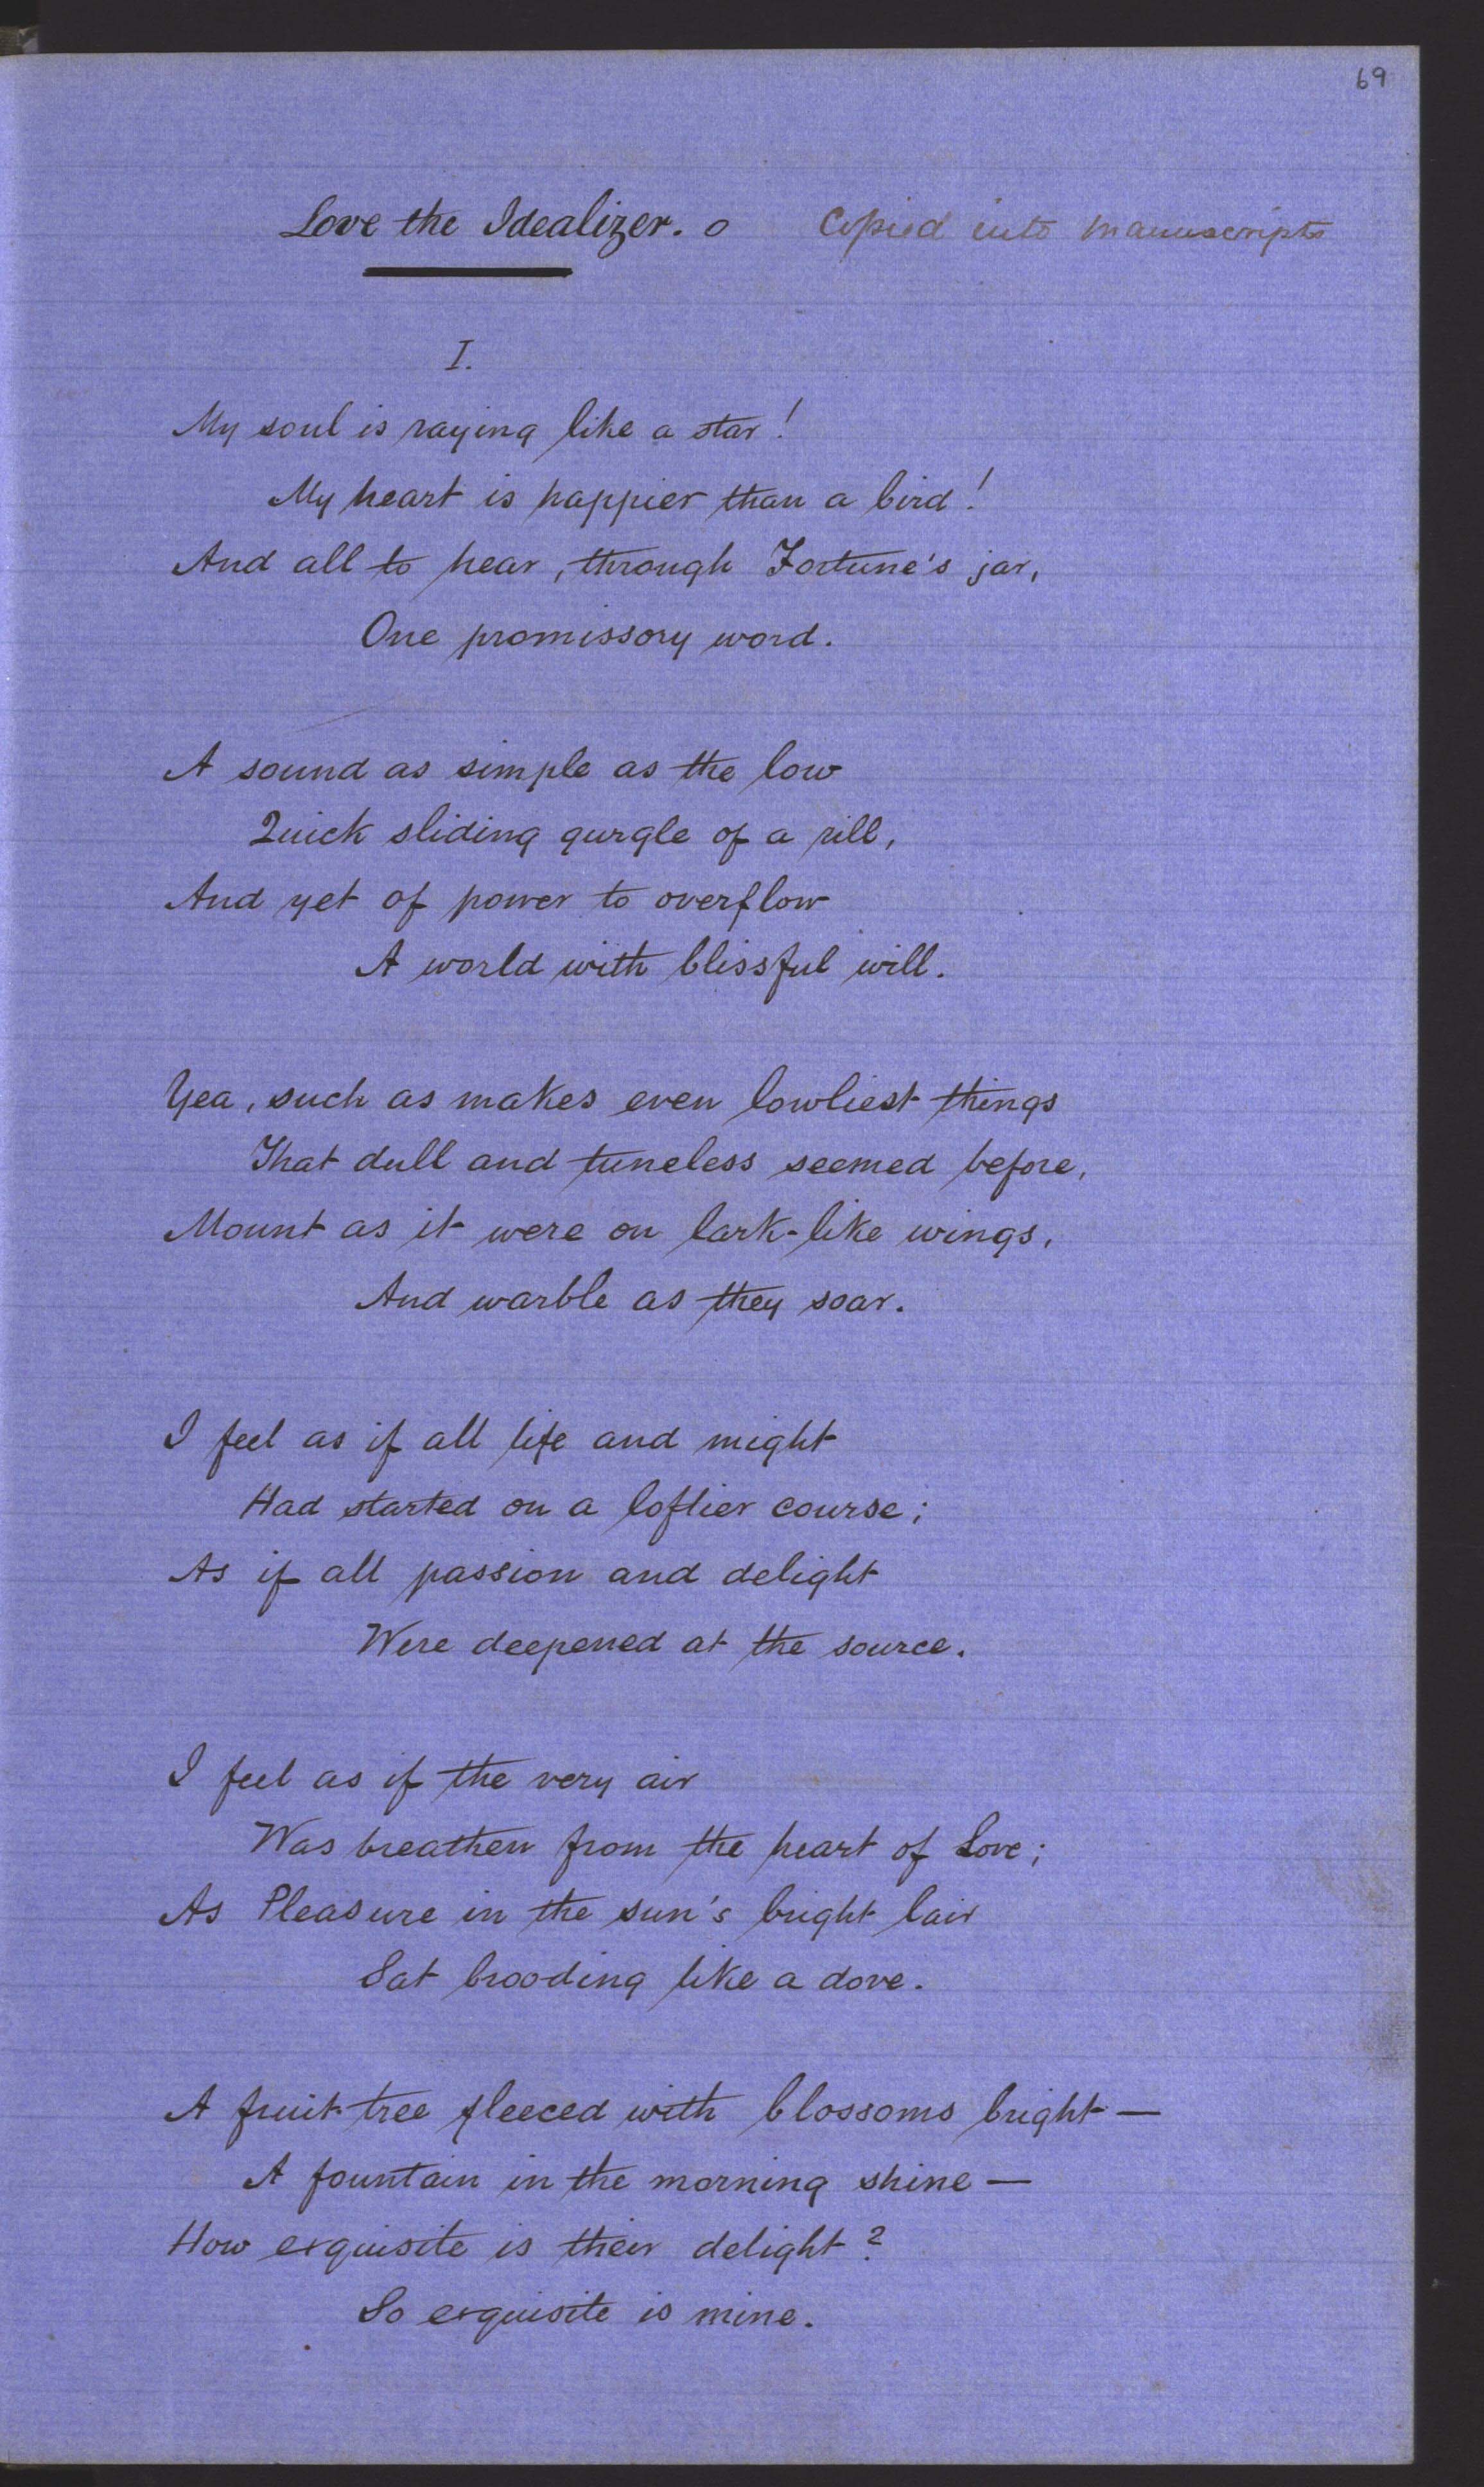 69
Love the Idealizer. o Copied into manuscripts
I.
My soul is raying like a star!
My heart is happier than a bird!
And all to hear, through Fortune's jar,
One promissory word.
A sound as simple as the low
Quick sliding gurgle of a rill,
And yet of power to overflow
A world with blissful will.
Yea, such as makes even lowliest things
That dull and tuneless seemed before,
Mount as it were on lark-like wings,
And warble as they soar.
I feel as if all life and might
Had started on a loftier course;
As if all passion and delight
Were deepened at the source.
I feel as if the very air
Was breathen from the heart of Love;
As Pleasure in the sun's bright lair
Sat brooding like a dove.
A fruit-tree fleeced with blossoms bright—
A fountain in the morning shine—
How exquisite is their delight?
So exquisite is mine.